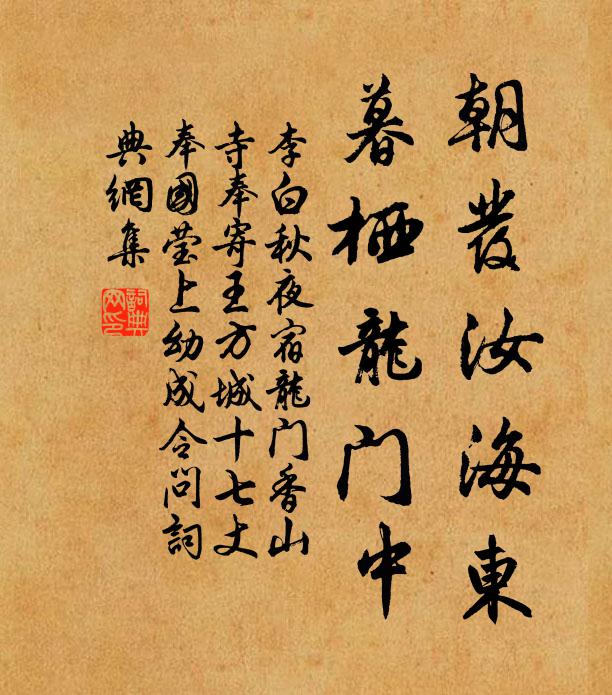 朝發汝海東
暮栖龍门中
李白秋夜宿龍门香山
寺奉寄王方城十七丈
奉國莹上幼成令问詞
典網集
詞典
网印